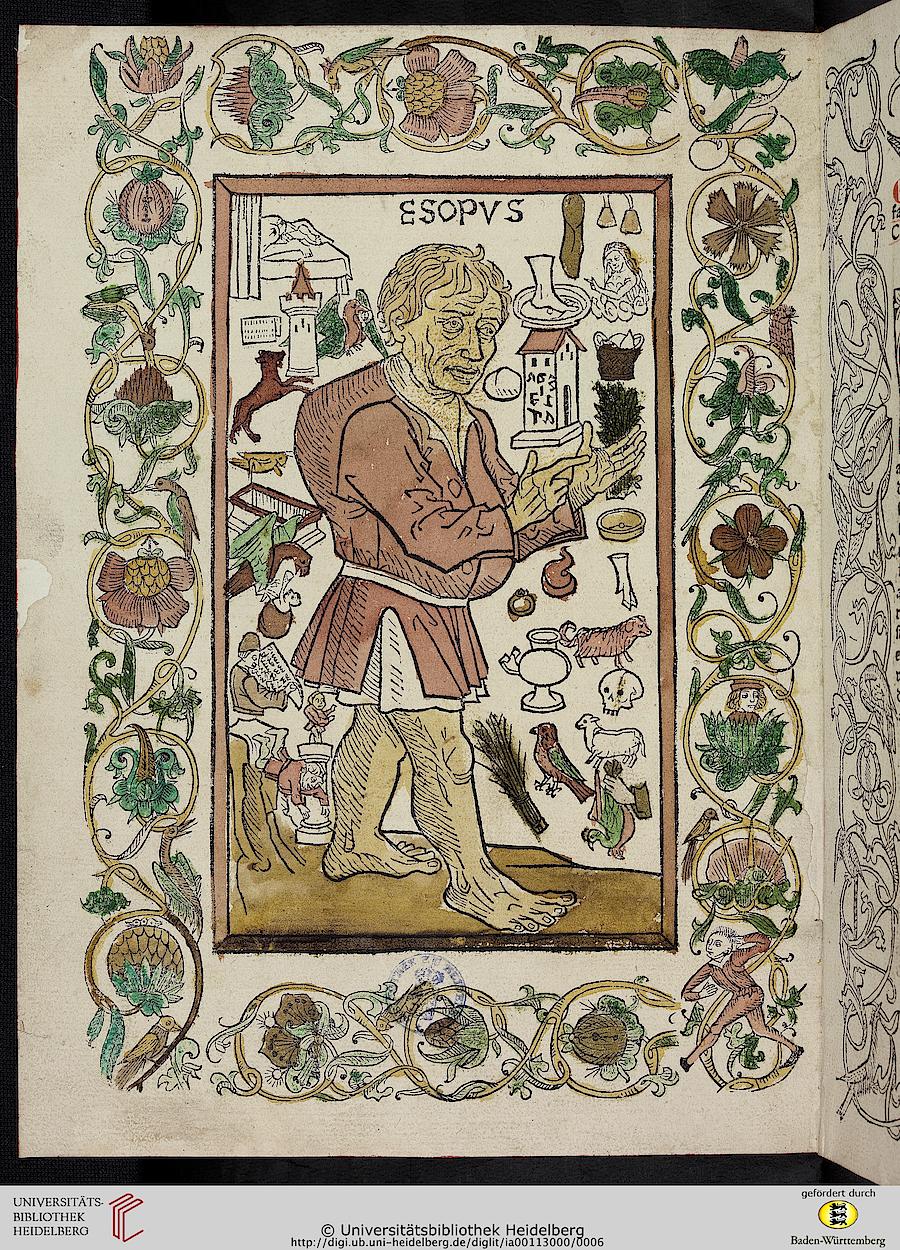 ESOPVS
UNIVERSITÄTS-
BIBLIOTHEK
HEIDELBERG
© Universitätsbibliothek Heidelberg
http://digi.ub.uni-heidelberg.de/diglit/ia00113000/0006
gefördert durch
Baden-Württemberg